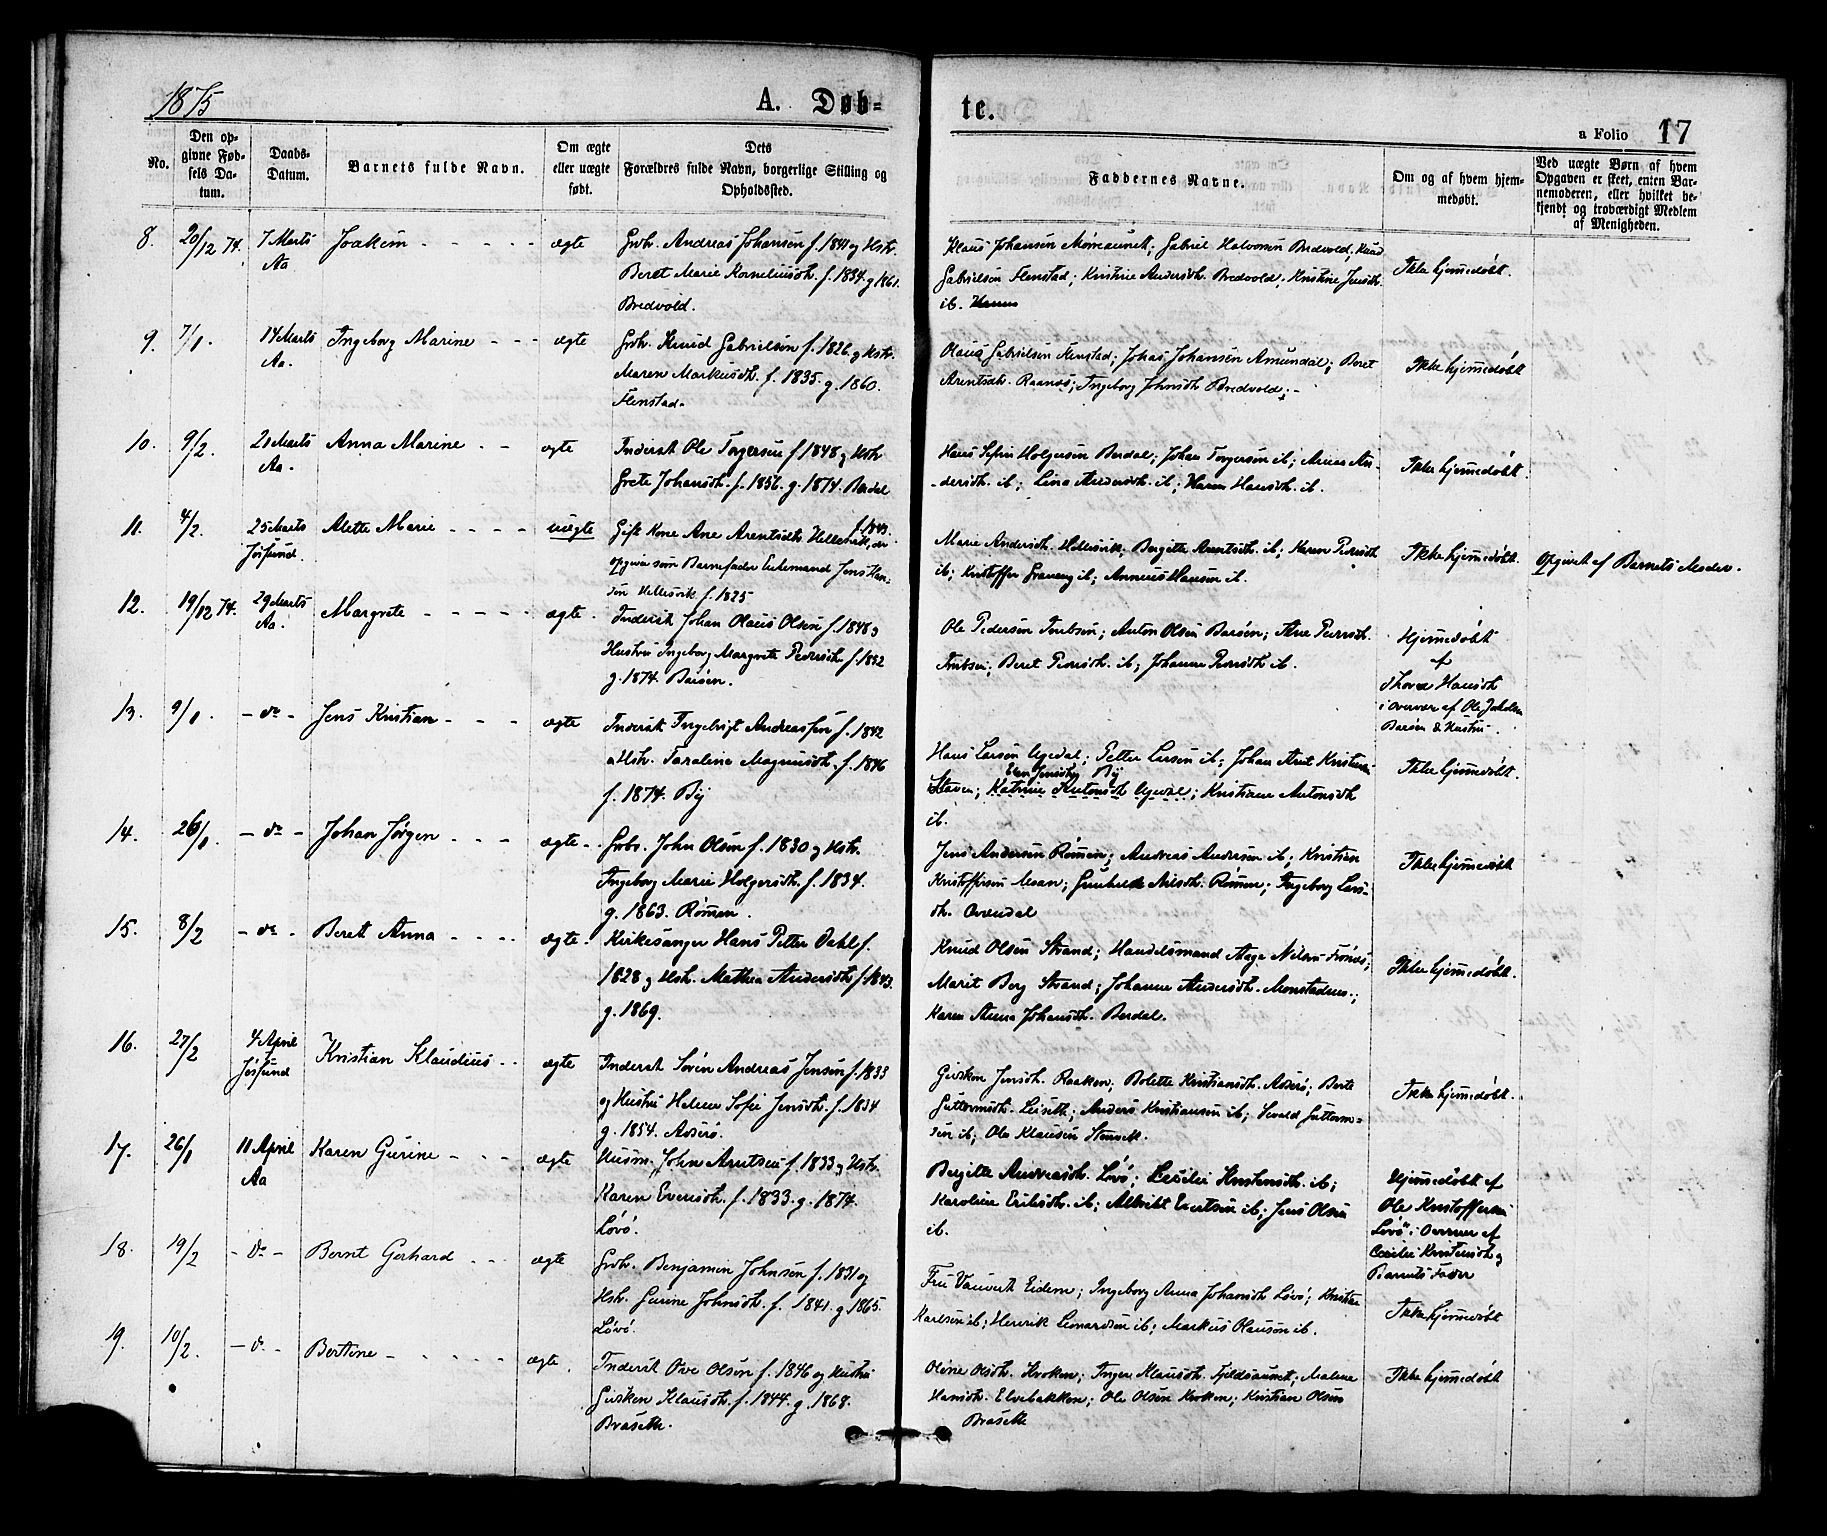 1875
A. Døb-
te.
a Folio 17
No.
Den op-
givne Fød-
sels Da-
tum.
Daabs-
Datum.
Barnets fulde Navn.
Om ægte
eller uægte
født.
Dets
Forældres fulde Navn, borgerlige Stilling og
Opholdssted.
Faddernes Navne.
Om og af hvem hjem-
medøbt.
Ved uægte Børn af hvem
Opgaven er skeet, enten Bar-
nemoderen, eller hvilket be-
kjendt og troværdigt Medlem
af Menigheden.
8. 20/12 74. 7 Marts Joakim - - - - - ægte Grdb. Andreas Johansen f. 1841 og Hstr.
Aa
Beret Marie Korneliusdtr. f. 1834. g 1861.
Bredvold.
Klaus Johansen Møreaunet; Gabriel Halvorsen Bredvold; Knud
Gabrielsen Flenstad; Kristine Andersdtr. Bredvold; Kristine Jensdtr.
ib.
Ikke hjemmedøbt.
9. 7/1. 14 Marts Ingeborg Marine - - - ægte Grdb. Knud Gabrielsen f. 1826. og Hstr.
Aa.
Maren Markusdtr. f. 1835. g. 1860.
Flenstad.
Olaus Gabrielsen Flenstad; Johas Johansen Amundal; Beret
Arentsdtr. Raanes; Ingeborg Johnsdtr Bredvold; -
Ikke hjemmedøbt
10. 9/2. 21 Marts Anna Marine - - ægte Inderst Ole Torgersen f 1848 og Hstr
Aa.
Grete Johansdtr. f. 1856. g. 1874. Berdal
Hans Holgersen Berdal; Johan Torgersen ib; An-
-dersdtr. ib; Lina Andersdtr. ib; Karen Hansdtr. ib.
Ikke hjemmedøbt.
11. 4/2. 25 Marts Alette Marie - - - - uægte Gift Kone Ane Arentsdtr Hellesvik,
f. 1843.
Jøssund.
opgiver som Barnefader Enkemand Jens Han-
sen Hellesvik f. 1825
Marie Andersdtr. Hellesvik; Bergitte Arentsdtr. ib; Karen Pedersdtr
ib; Kristoffer ib; Hansen ib.
Ikke hjemmedøbt. Opgivet af Barnets Moder.
12. 19/12 74. 29 Marts Margrete - - - - - ægte. Inderst Johan Olaus Olsen f. 1848 og
Aa.
Hustru Ingeborg Margrete Pedersdtr. f. 1852
g. 1874. Barøen.
Ole Pedersen; Anton Olsen Barøen; Ane Pedersdtr.
Beret Pedersdtr. ib; Johanna Pedersdtr ib.
Hjemmedøbt
af
Hansdtr
i Overvær af Ole Jakobsen
Barøen & Hustru.
13. 9/1. - do - Jens Kristian - - - ægte Inderst Ingebrigt Andreassen f. 1842
& Hstr. Taraline Magnusdtr. f. 1846
f. 1874. By
Hans Larsen Ugedal; Petter Larsen ib; Johan Arnt Kristiansen
By
Katrine Antonsdtr Ugedal; Kristiane Antonsdtr
ib.
Ikke hjemmedøbt.
14. 26/1. - do - Johan Jørgen - - - ægte - Grbr. John Olsen f. 1830 og Hstr.
Ingeborg Marie Holgersdtr. f. 1834.
g. 1863. Rømen.
Jens Andersen Rømen; Andreas Andersen ib; Kristian
Kristoffersen Moan; Gunhild Nilsdtr. Rømen; Ingeborg Lars-
dtr.
Ikke hjemmedøbt
15. 8/2 - do - Berit Anna - - - - ægte. Kirkesanger Hans Petter Dahl f.
1828 og Hstr. Mathea Andersdtr f. 1843.
g. 1869.
Knud Olsen Strand; Handelsmand Aage Nilsen;
Marit Berg Strand; Johanna Andersdtr. Monstadmo.;
Karen Anna Johansdtr. Berdal.
Ikke hjemmedøbt.
16. 27/2 4 April Kristian Klaudius - - ægte Inderst Søren Andreas Jensen f. 1833
Jøssund
og Hustru Helene Sofie Jensdtr. f. 1834
g. 1854. Asserø.
Gjesken Jensdtr. Raaken; Bolette Kristiansdtr. Asserø; Berte
Guttormsdtr. Leiseth; Anders Kristiansen ib; Sevald Guttorm-
sen ib; Ole Klausen Stenvik.
Ikke hjemmedøbt.
17. 26/1 11 April Karen Gurine - - - ægte Husm. John Arntsen f. 1833 og Hstr.
Aa
Karen Evensdtr. f. 1833. g. 1874.
Løvø.
Bergitte Andreasdtr. Løvø; Cecilie Kristensdtr. ib;
Karoline Eriksdtr. ib; Albrikt Evertsen ib; Jens Olsen
ib.
Hjemmedøbt af
Ole Kristoffersen
Løvø i Overvær af
Cecilie Kristensdtr og
Barnets Fader
18. 19/2 - do - Bernt Gerhard - - - ægte Grdb. Benjamin Johnsen f. 1831 og
Hstr. Gurine Johnsdtr. f. 1841. g 1865.
Løvø.
Fru Eidem; Ingeborg Anna Johansdtr Løvø; Kristian
Karlsen ib; Henrik Leonardsen ib; Markus Olausen ib.
Ikke hjemmedøbt
19. 10/2. - do - Bertine - - - - - ægte. Inderst Ove Olsen f. 1846 og Hustru
Gjesken Klausdtr. f. 1844. g. 1868.
Brasette.
Oline Olsdtr. Kroken; Inger Klausdtr. Fjeldsaunet; Malene
Hansdtr. Elvebakken; Ole Olsen Kroken; Kristian Olsen
Brasette
Ikke hjemmedøbt